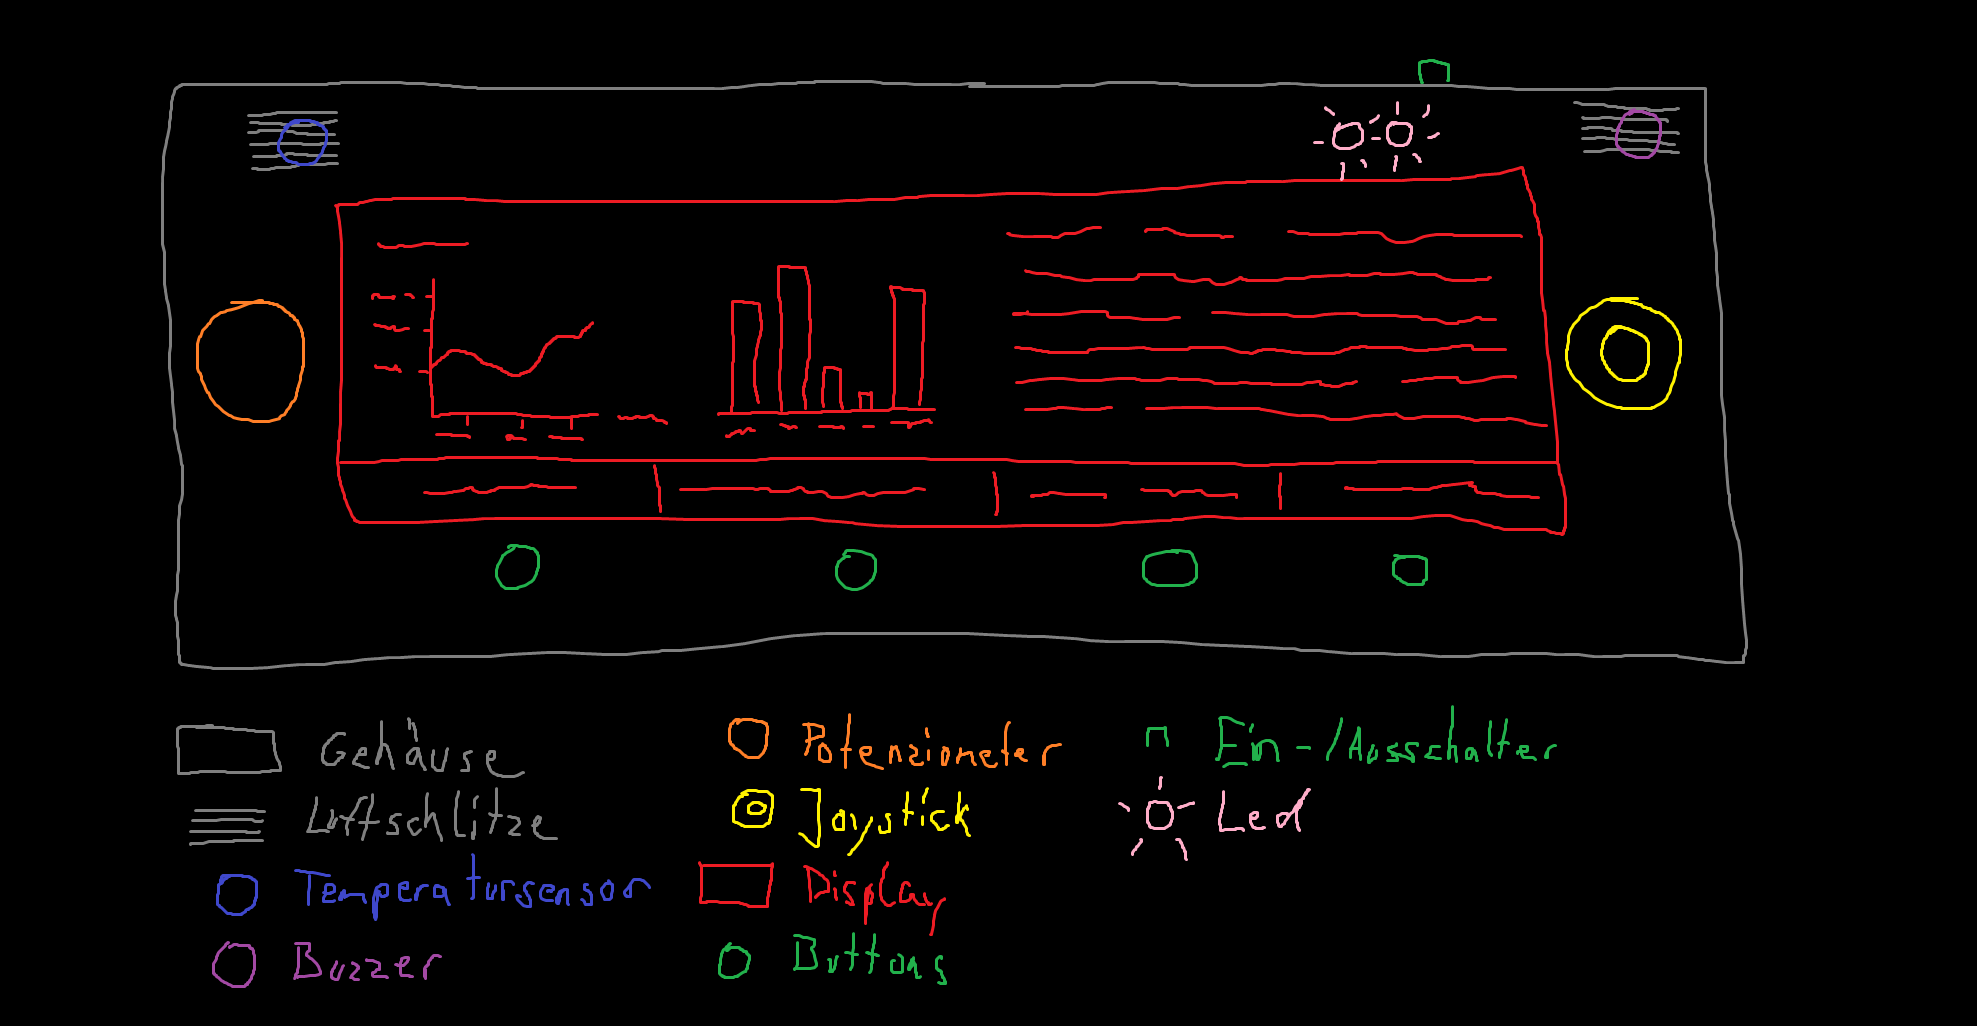 Gehäuse
Luftschlitze
Temperatursensor
Buzzer
Potenziometer
Joystick
Display
Buttons
Ein-/Ausschalter
Led